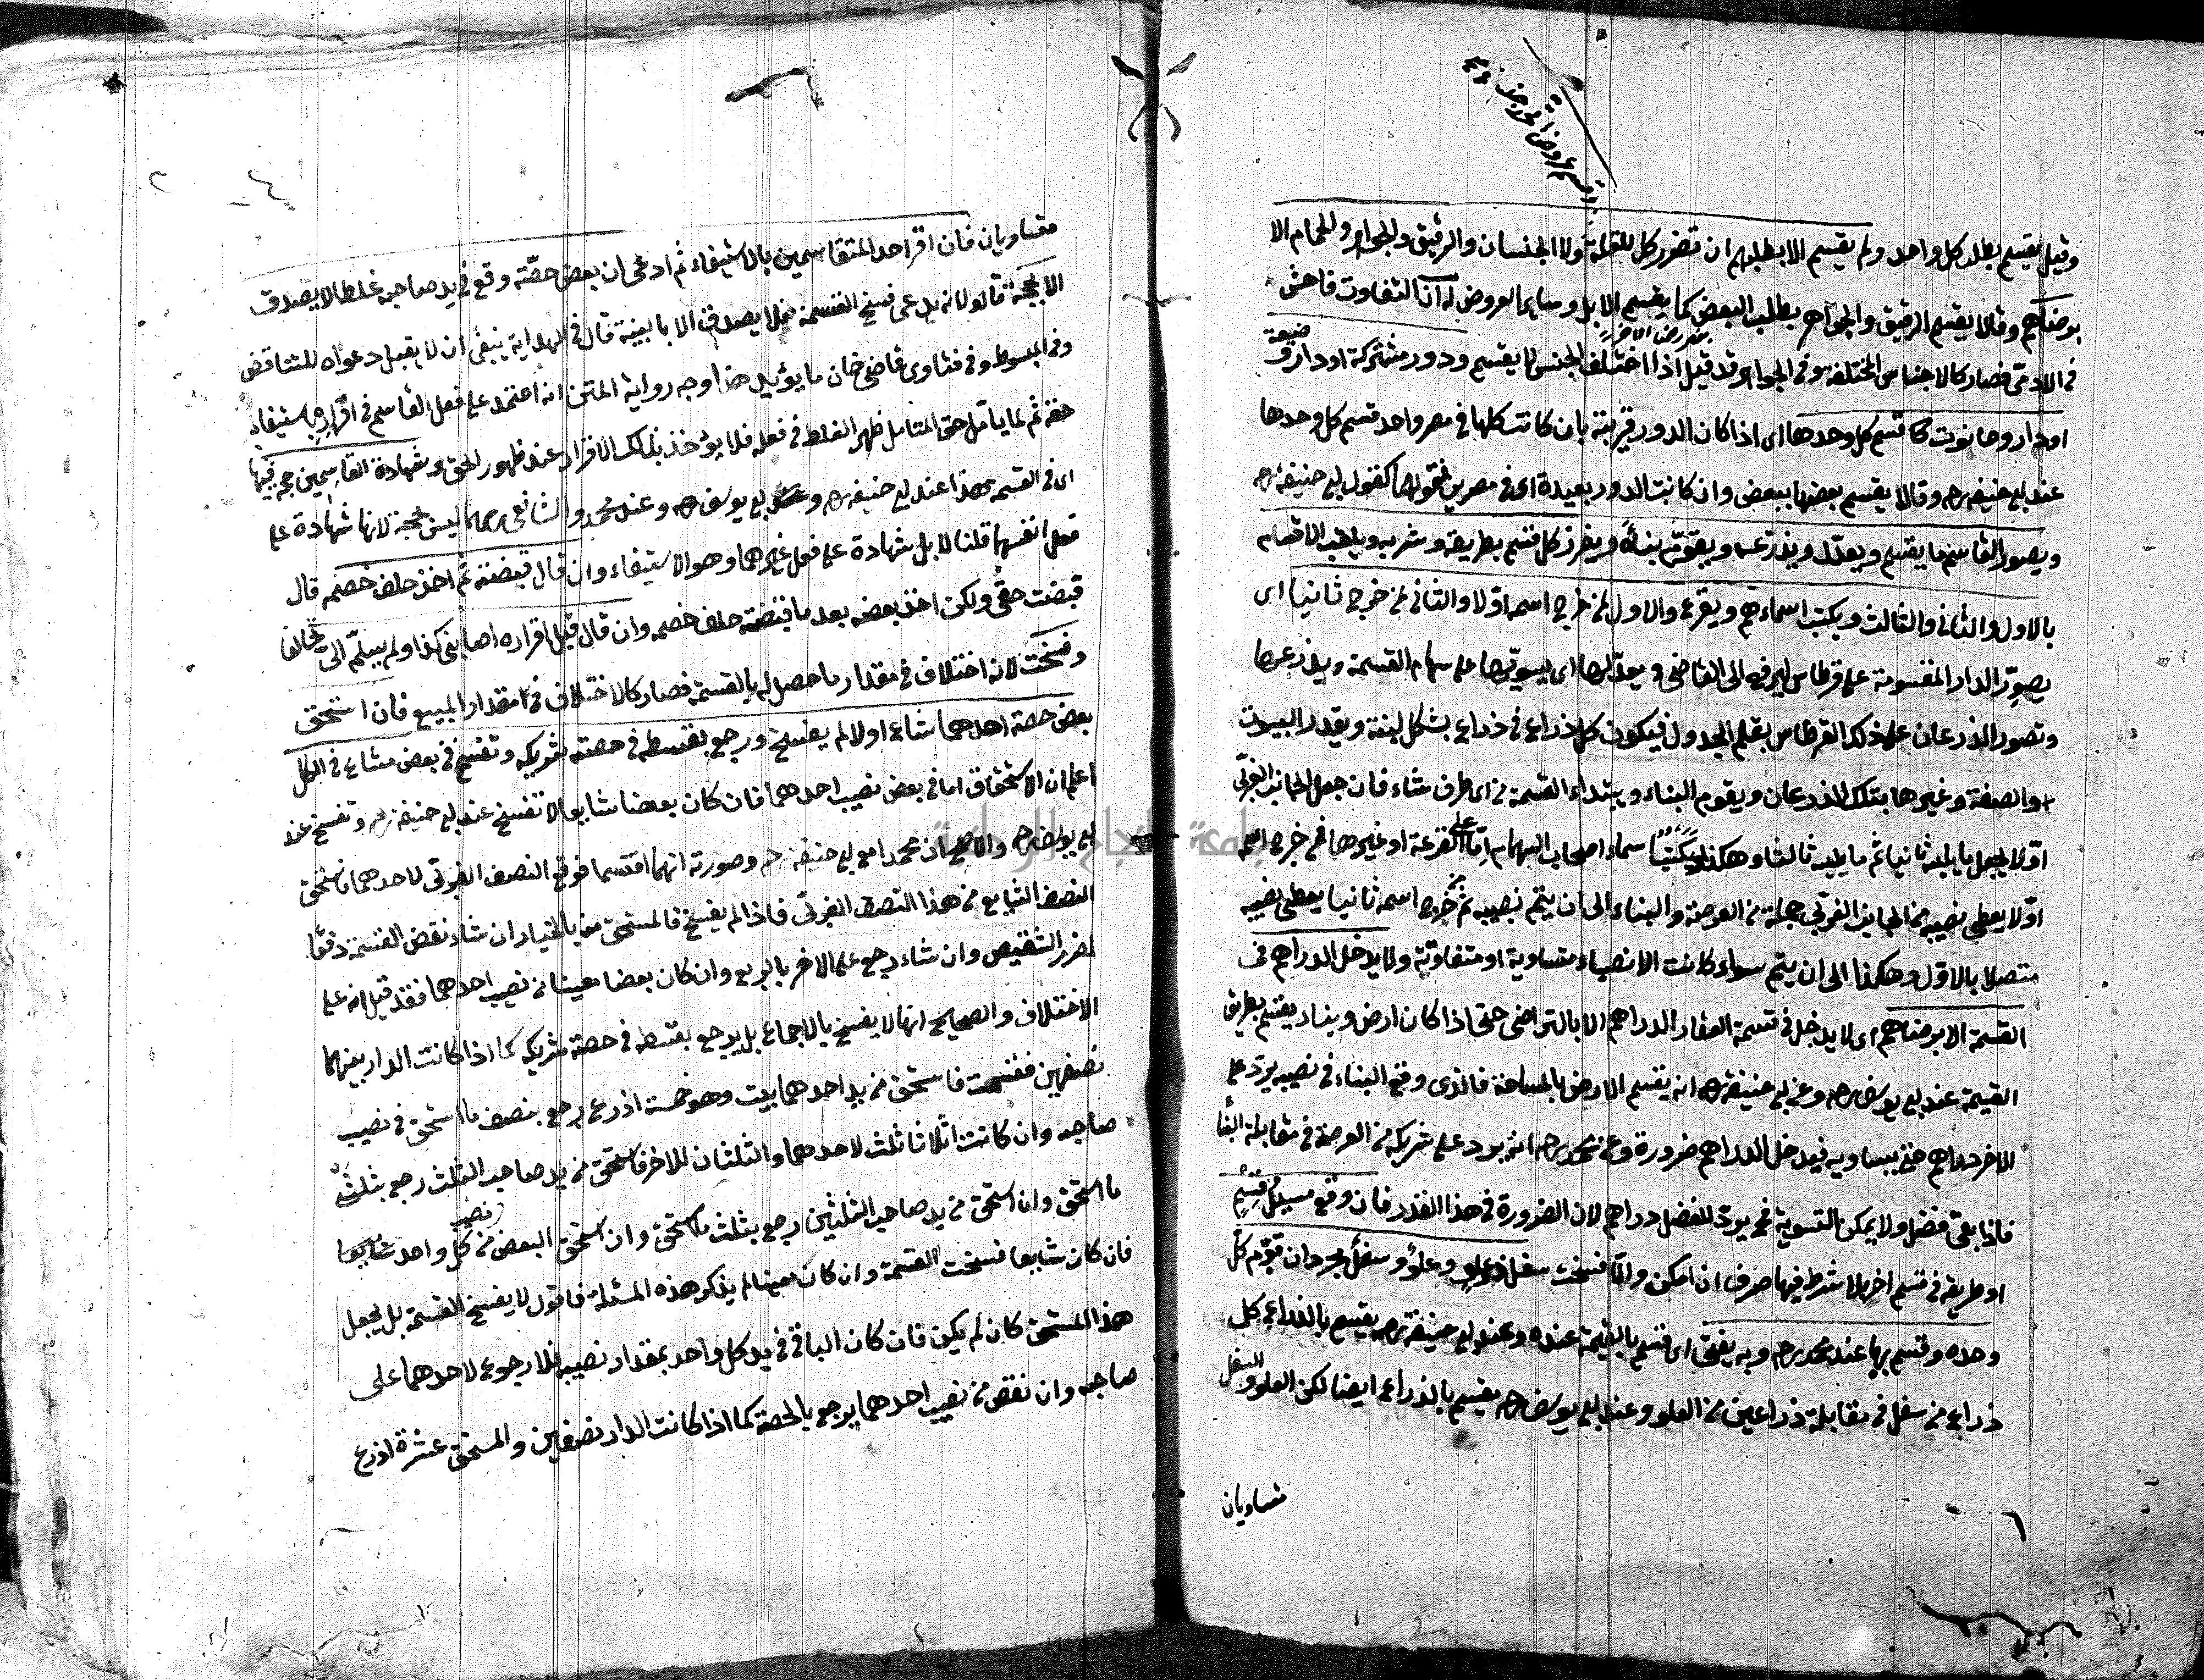 وقيل يقسم بطلب كل واحد ولم يقسم الا بطلبهم ان تضرر كل للقلة ولا الجنسان والرقيق والجواهر والحمام الا
برضاهم وقالا يقسم الرقيق والجواهر بطلب البعض كما يقسم الابل وساير العروض له ان التفاوت فاحش
في الادمي فصار كالاجناس المختلفة وفي الجواهر قد قيل اذا اختلف الجنس لا يقسم ودور مشتركة او دار وضيعة
او دار وحانوت قسم كل وحدها اى اذا كان الدور قريبة بان كانت كلها في مصر واحد قسم كل وحدها
عند ابي حنيفة رح وقالا يقسم بعضها ببعض وان كانت الدور بعيدة اى في مصرين فقولهما كقول ابي حنيفة رح
ويصور القاسم ما يقسم ويعدله ويذرعه ويقوم بناءه ويفرز كل قسم بطريقه وشربه ويلقب الاقسام
بالاول والثاني والثالث ويكتب اسماءهم ويقرع والاول لمن خرج اسمه اولا والثاني لمن خرج ثانيا اى
يصور الدار المقسومة على قرطاس ليرفع الى القاضي ويعدلها اى يسويها على سهام القسمة ويذرعها
وتصور الذرعان على ذلك القرطاس بقلم الجدول فيكون كل ذراع في ذراع بشكل لبنة ويقدر البيوت
والصفة وغيرها بتلك الذرعان ويقوم البناء ويبتداء القسمة من اى طرف شاء فان جعل الجانب الغربي
اولا يجعل ما يليه ثانيا ثم ما يليه ثالثا وهكذا ويكتب اسماء اصحاب السهام اما على القرعة او غيرها فمن خرج اسمه
اولا يعطى نصيبه من الجانب الغربي جملة من العرصة والبناء الى ان يتم نصيبه ثم من خرج اسمه ثانيا يعطى نصيبه
متصلا بالاول وهكذا الى ان يتم سواء كانت الانصباء متساوية او متفاوتة ولا يدخل الدراهم في
القسمة الا برضاهم اى لا يدخل في قسمة العقار الدراهم الا بالتراضي حتى اذا كان ارض وبناء يقسم بطريق
القيمة عند ابي يوسف رح وعن ابي حنيفة رح انه يقسم الارض بالمساحة فالذى وقع البناء في نصيبه يرد على
الاخر دراهم حتى يساويه فيدخل الدراهم ضرورة وعن محمد رح انه يرد على شريكه من العرصة في مقابلة البناء
فاذا بقى فضل ولا يمكن التسوية فح يرد للفضل دراهم لان الضرورة في هذا القدر فان وقع مسيل قسم
او طريقه في قسم اخر بلا شرط فيها صرف ان امكن والا فسخت سفل ذو علو وعلو وسفل مجردان قوم كل
وحده وقسم بها عند محمد رح وبه يفتى اى قسم بالقيمة عنده وعند ابي حنيفة رح يقسم بالذراع كل
ذراع من سفل في مقابلة ذراعين من العلو وعند ابي يوسف رح يقسم بالذراع ايضا لكن العلو والسفل
متساويان
متساويان فان اقر احد المتقاسمين بالاستيفاء ثم ادعى ان بعض حصته وقع في يد صاحبه غلطا لا يصدق
الا بحجة قالوا لانه يدعى فسخ القسمة فلا يصدق الا بالبينة قال في الهداية ينبغي ان لا يقبل دعواه للتناقض
وفي المبسوط وفي فتاوى قاضي خان ما يؤيد هذا وجه رواية المتن انه اعتمد على فعل القاسم في اقراره باستيفاء
حقه ثم لما تأمل حق التأمل ظهر الغلط في فعله فلا يؤخذ بذلك الاقرار عند ظهور الحق وشهادة القاسمين حجة فيها
اى في القسمة هذا عند ابي حنيفة رح وابي يوسف رح وعند محمد والشافعي رحمهما ليس بحجة لانها شهادة على
فعل انفسهما قلنا لا بل شهادة على فعل غيرهما وهو الاستيفاء وان قال قبضته ثم اخذ حلف خصمه قال
قبضت حقي ولكن اخذ بعضه بعد ما قبضته حلف خصمه وان قال قبل اقراره اصابني كذا ولم يسلم الي تحالفا
وفسخت لانه اختلاف في مقدار ما حصل له بالقسمة فصار كالاختلاف في مقدار المبيع فان استحق
بعض حصة احدهما شاع او لا لم يفسخ ورجع بقسطه في حصة شريكه وتفسخ في بعض مشاع في الكل
اعلم ان الاستحقاق اما في بعض نصيب احدهما فان كان بعضا شايعا لا تفسخ عند ابي حنيفة رح وتفسخ عند
ابي يوسف رح والاصح ان محمدا مع ابي حنيفة رح وصورته انهما اقتسما فوقع النصف الغربي لاحدهما فاستحق
النصف الشايع من هذا النصف الغربي فاذا لم يفسخ فالمستحق منه بالخيار ان شاء نقض القسمة دفعا
لضرر التشقيص وان شاء رجع على الاخر بالربع وان كان بعضا معينا من نصيب احدهما فقد قيل انه على
الاختلاف والصحيح انها لا يفسخ بالاجماع بل يرجع بقسطه في حصة شريكه كما اذا كانت الدار بينهما
نصفين فقسمت فاستحق من يد احدهما بيت وهو خمسة اذرع رجع بنصف ما استحق في نصيب
صاحبه وان كانت اثلاثا ثلث لاحدهما والثلثان للاخر فاستحق من يد صاحب الثلث رجع بثلثي
ما استحق وان استحق من يد صاحب الثلثين رجع بثلث ما استحق وان استحق البعض من نصيب كل واحد شايعا
فان كان شايعا فسخت القسمة وان كان معينا لم يذكر هذه المسئلة فاقول لا يفسخ القسمة بل يجعل
هذا المستحق كان لم يكن فان كان الباقي في يد كل واحد بمقدار نصيبه فلا رجوع لاحدهما على
صاحبه وان نقص من نصيب احدهما يرجع بالحصة كما اذا كانت الدار نصفين والمستحق عشرة اذرع